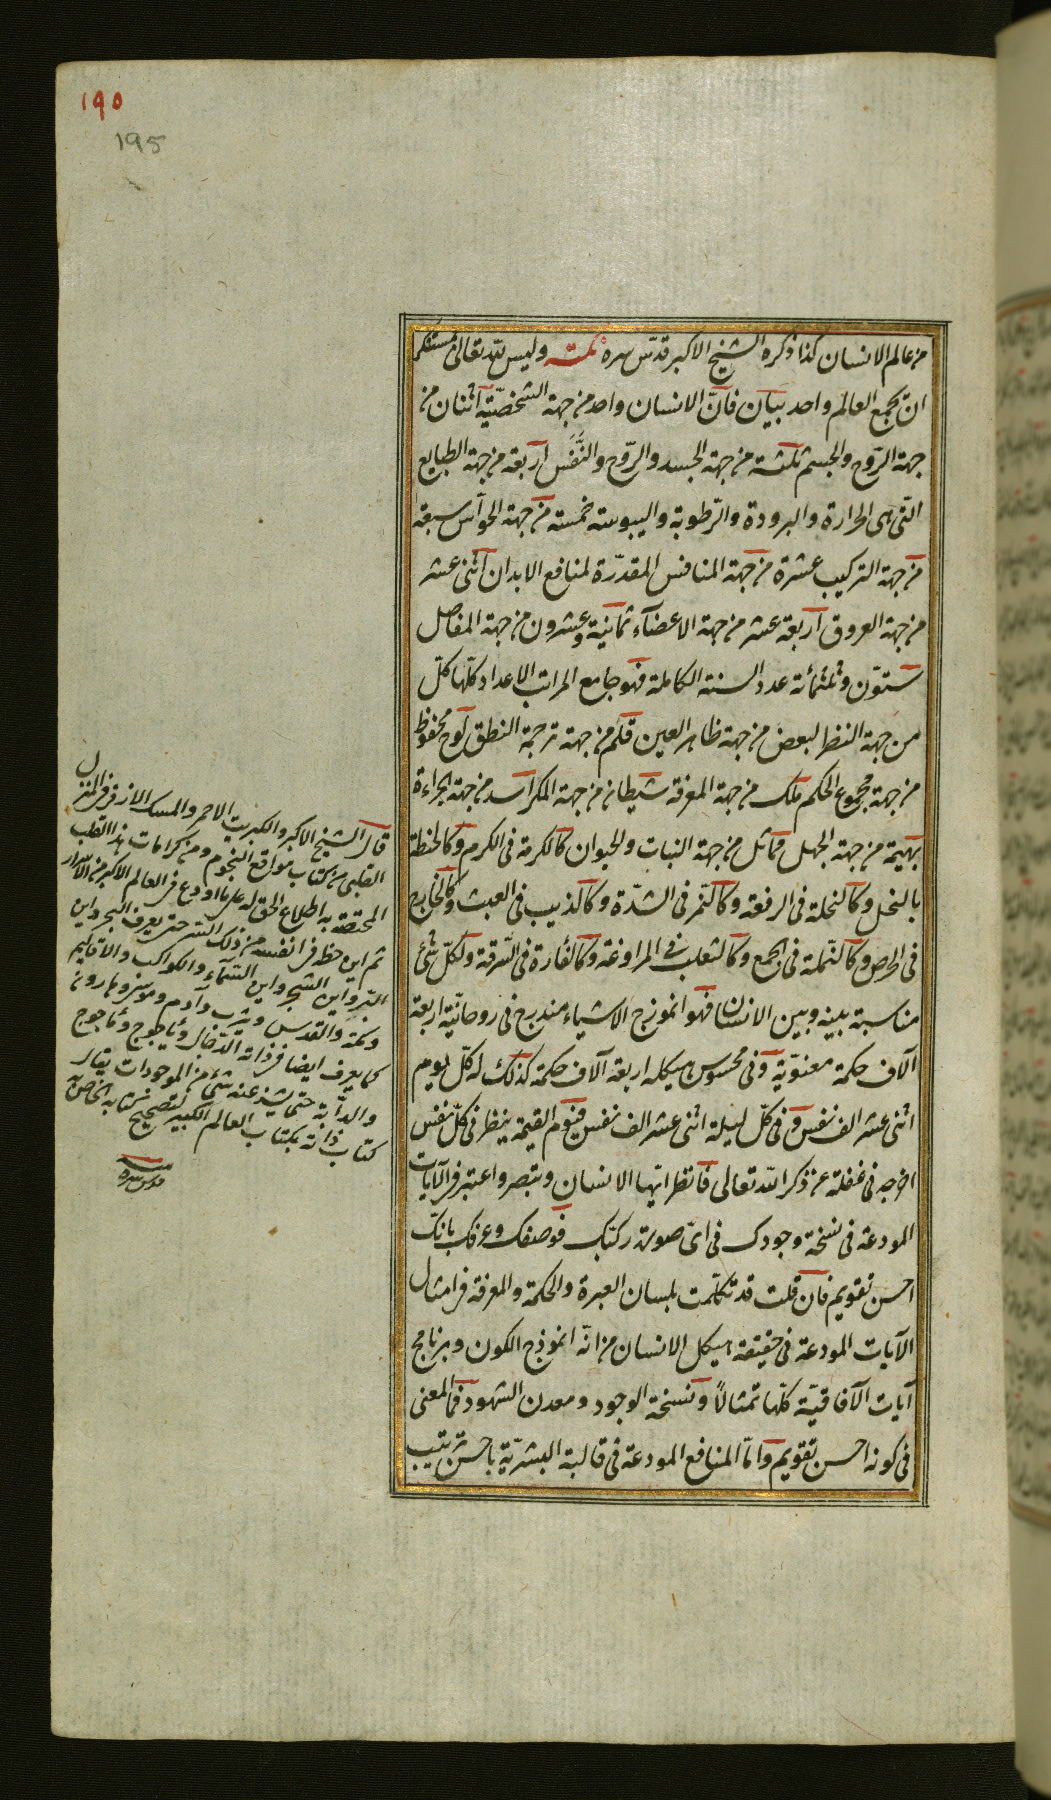 ١٩٥
195
من عالم الانسان كذا ذكره الشيخ الاكبر قدّس سره نكتة وليس لله تعالى بمستنكر
ان يجمع العالم واحد بيان فانّ الانسان واحد من جهة الشخصيّة اثنان من
جهة الرّوح والجسم ثلثة من جهة الجسد والرّوح والنَّفَس اربعة من جهة الطبايع
التى هى الحرارة والبرودة والرّطوبة واليبوسة خمسة من جهة الحوآس سبعة
من جهة التركيب عشرة من جهة المنافس المقدّرة لمنافع الابدان اثنى عشر
من جهة العروق اربعة عشر من جهة الاعضآء ثمانية وعشرون من جهة المفاصل
ستّون وثلثمائة عدد السنة الكاملة فهو جامع المراتب الاعداد كلّها كلّ
من جهة النظر البعض من جهة ظاهر العين قلم من جهة ترجمة النطق لوح محفوظ
من جهة مجموع الحكم ملك من جهة المعرفة شيطان من جهة المكر اسد من جهة الجراءة
بهيمة من جهة الجهل مماثل من جهة النبات والحيوان كالكرمة فى الكرم وكالحنظلة
بالنحل وكالنحلة فى الرفعة وكالنّمر فى الشدّة وكالذيب فى العبث وكالخنازير
فى الحرص وكالنّملة فى الجمع وكالثعلب فى المراوغة وكالفأرة فى السّرقة ولكلّ شئ
مناسبة بينه وبين الانسان فهو انموزج الاشياء مندرج فى روحانيّته اربعة
آلاف حكمة معنويّة وفى محسوس هيكله اربعة آلاف حكمة كذلك له كلّ يوم
اثنى عشر الف نفس وفى كلّ ليلة اثنى عشر الف نفس فيوم القيمة ينظر فى كلّ نفس
اخرجه فى غفلة عن ذكر الله تعالى فانظر ايّها الانسان وتبصر واعتبر فى الآيات
المودعة فى نسخة وجودك فى اىّ صورة ركّبك فوصفك وعرفك بانّك
احسن تقويم فان قلت قد تكلّمت بلسان العبرة والحكمة والمعرفة فى امثال
الآيات المودعة فى حقيقة هيكل الانسان من انّه انموذج الكون وبرنامج
آيات الآفاقيّة كلّها تمثالاً ونسخة الوجود ومعدن الشهود فما المعنى
فى كونه احسن تقويم وامّا المنافع المودعة فى قالبة البشريّة باحسن ترتيب
قال الشيخ الاكبر والكبريت الاحمر والمسك الازفر فى المنزل
القلبى من كتاب مواقع النجوم ومن كرامات هذا القطب
المختصة به اطلاع الحق له على ما اودع فى العالم الاكبر من الاسرار
ثم اين حظه فى نفسه من ذلك السّر حتى يعرف البحر واين
البرّ واين الشجر واين السّمآء والكواكب والاقاليم
ومكّة والقدس ويثرب وآدم وموسى وهارون
كما يعرف ايضا فى ذاته الدّجّال وياجوج وماجوج
والدابّة حتى لا يشذ عنه شئ من الموجودات يقابل
كتاب ذاته بكتاب العالم الكبير لتصحيح كتابه الخاص به
قدس سره